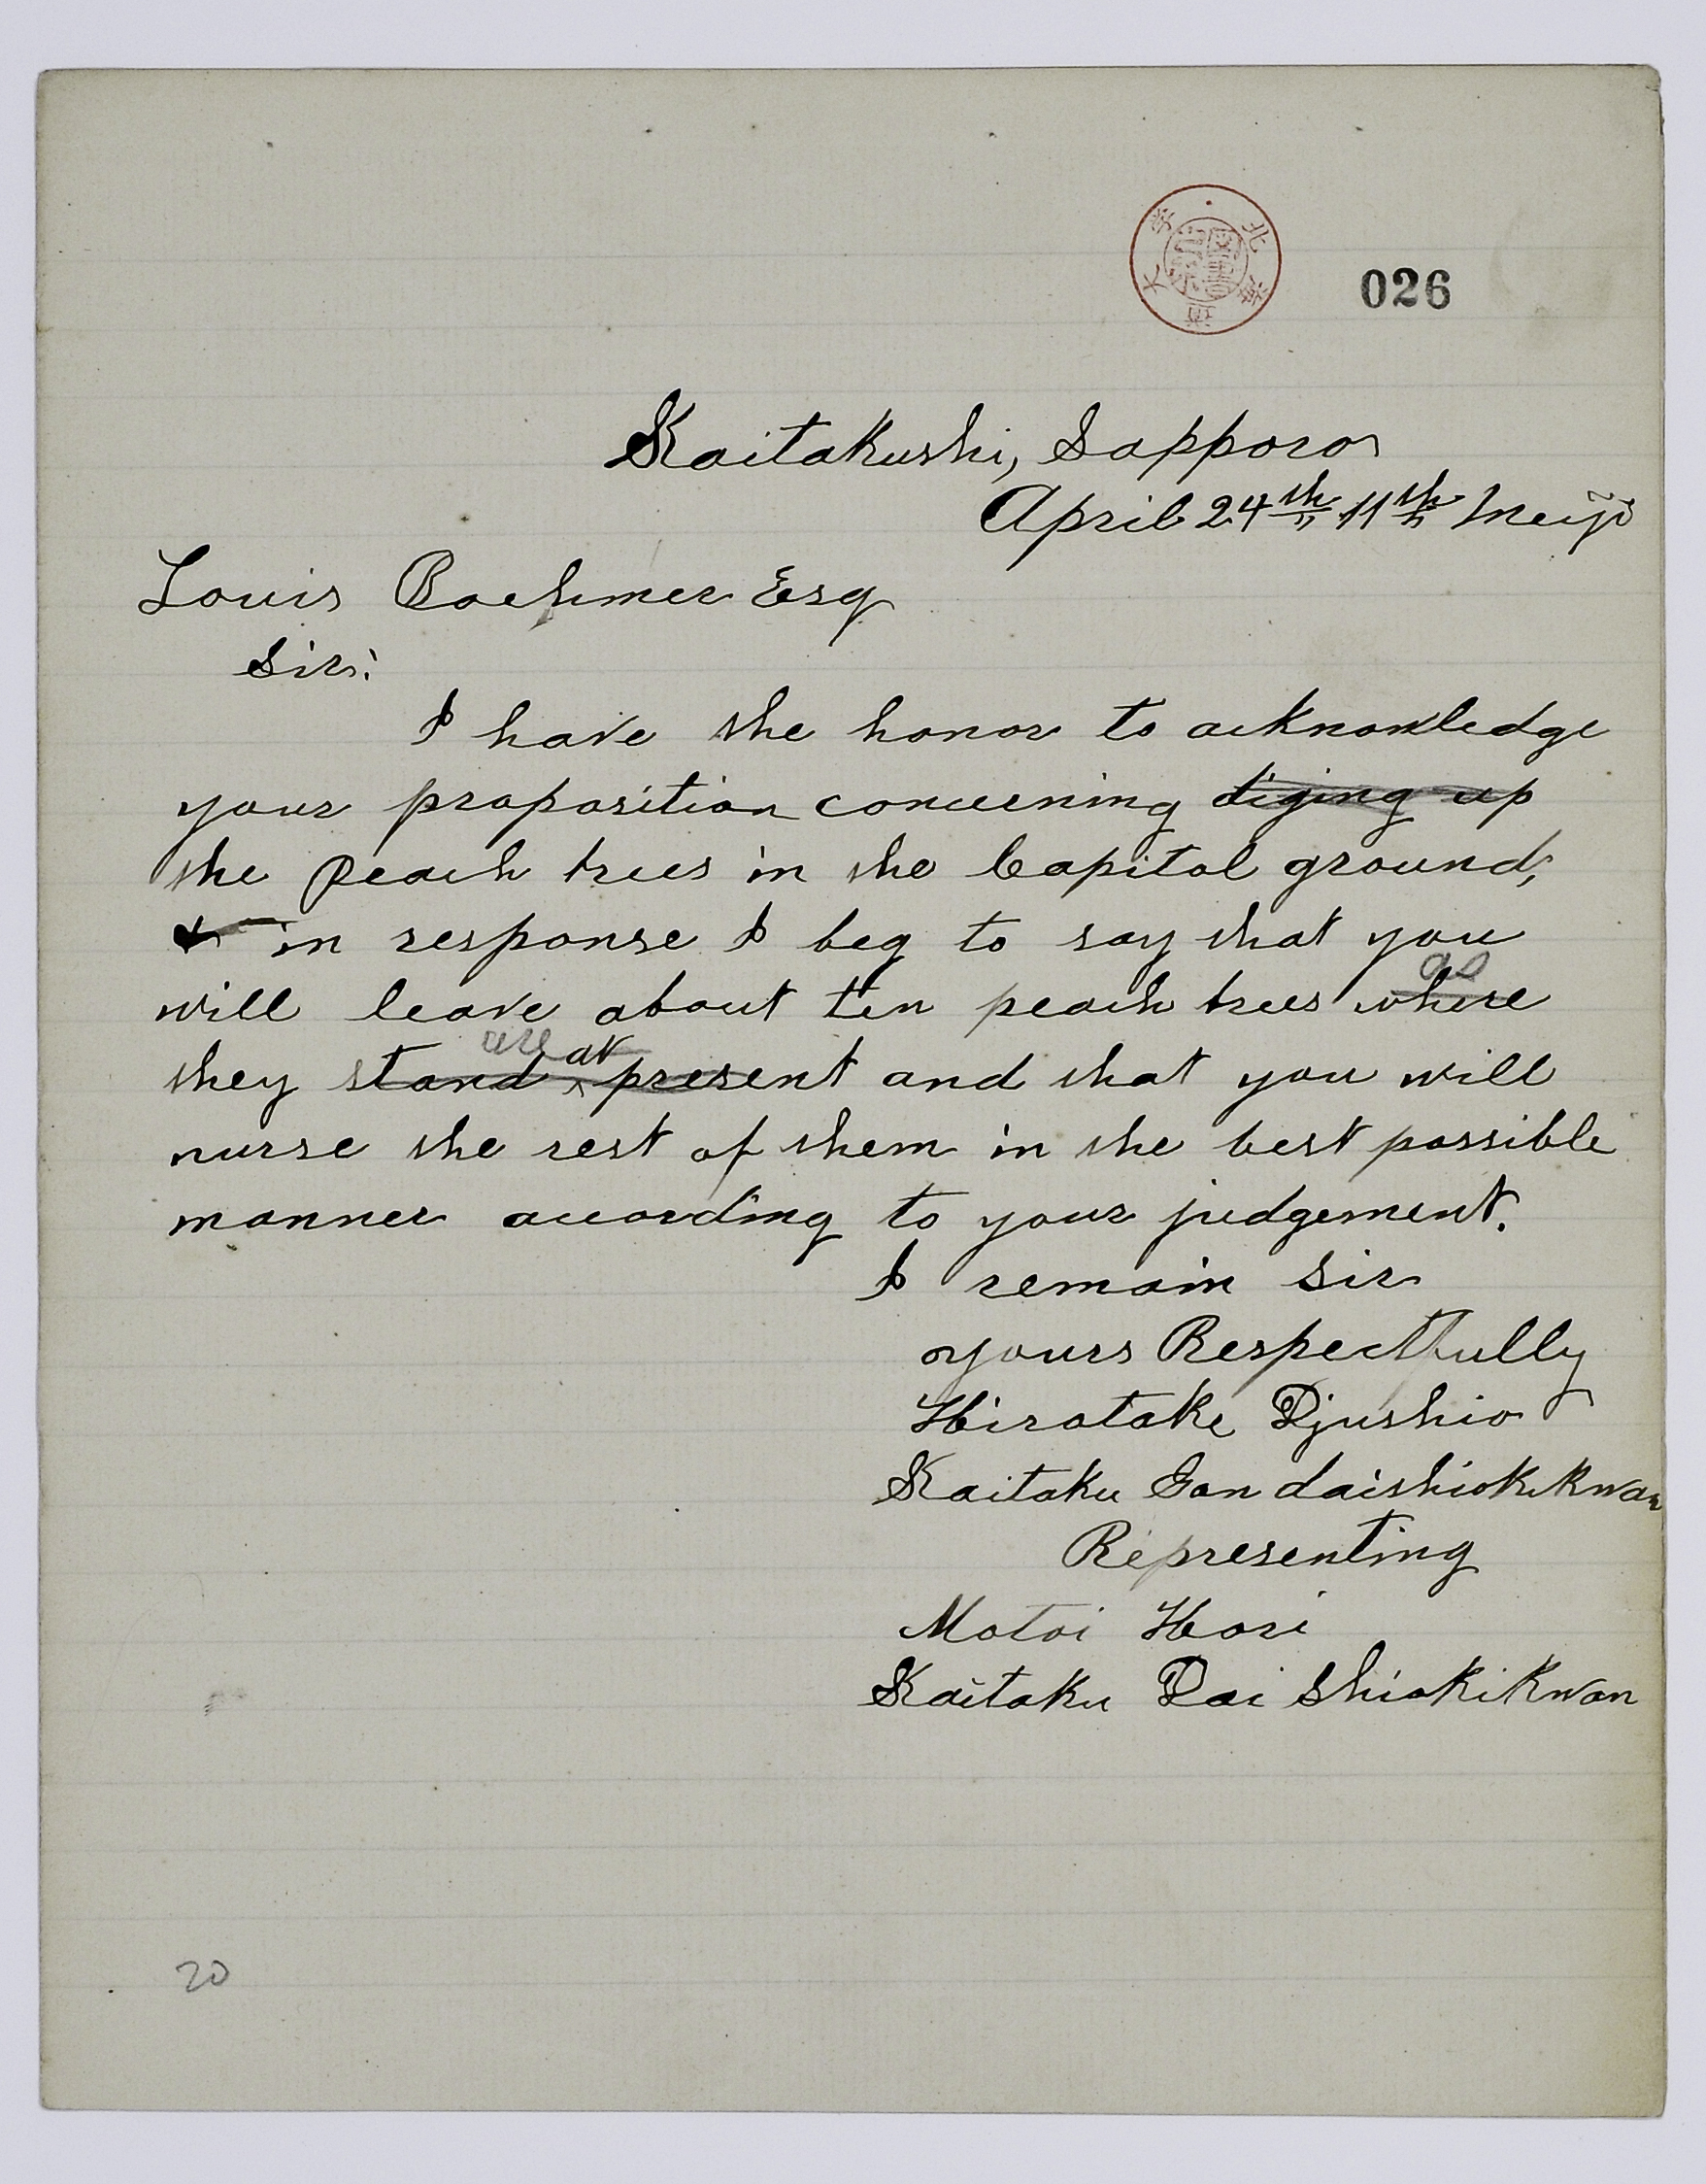 北海道大学
図書
026
Kaitakushi, Sapporo
April 24th 11th Meiji
Louis Boehmer Esq
Sir:
I have the honor to acknowledge
your proposition concerning diging up
the peach trees in the Capitol ground,
in response I beg to say that you
as
will leave about ten peach trees where
are at
they stand present and that you will
nurse the rest of them in the best possible
manner according to your judgement.
I remain Sir
yours Respectfully
Hirotake Djushio
Kaitaku Gon daishiokikwan
Representing
Motoi Hori
Kaitaku Dai Shiokikwan
20